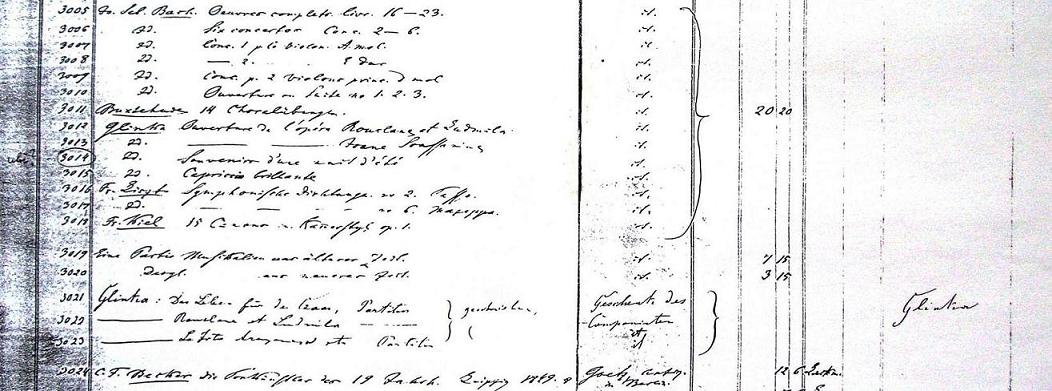 3005 Jo. Seb. Bach. Oeuvres complets. Livr. 16—23. id.
3006 Id. Six concertos Conc. 2—6. id.
3007 Id. Conc. 1 p. le violon. A mol. id.
3008 Id. — 2. E dur id.
3009 Id. Conc. p. 2 violons princ. D mol id.
3010 Id. Ouverture ou Suite no 1. 2. 3. id.
3011 Buxtehude 14 Choralübungen. id. 20 20
3012 Glinka Ouverture de l'opéra Rouslane et Ludmila. id.
3013 Id. — — id.
3014 Id. Souvenir d'une nuit d'été id.
3015 Id. Capriccio brillante id.
3016 Fr. Liszt Symphonische Dichtunge. no 2. Tasso. id.
3017 Id. — — no 6. Mazeppa. id.
3018 Fr. Kiel 15 Canons u. Kammerstyl op. 1. id.
3019 Eine Partie Musikalien aus älterer Zeit. id. 7 15
3020 Desgl. aus neuerer Zeit. id. 3 15
3021 Glinka: Das Leben für den Czaar, Partitur geschrieben, Geschenk des Glinka
3022 — Rouslane et Ludmila — Componisten
3023 — La Jota aragonesa etc Partitur id.
3024 C. F. Becker die Tonkünstler des 19 Jahrh. Leipzig 1849. 8 12 6